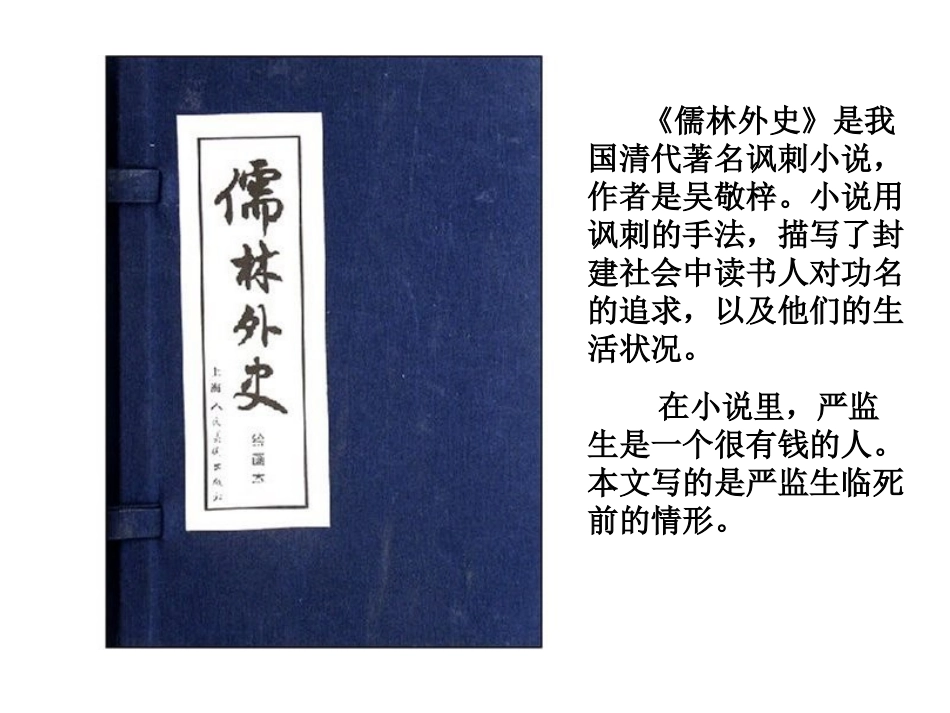 儒林外史
上海人民美术出版社
绘画本
《儒林外史》是我
国清代著名讽刺小说，
作者是吴敬梓。小说用
讽刺的手法，描写了封
建社会中读书人对功名
的追求，以及他们的生
活状况。
在小说里，严监
生是一个很有钱的人。
本文写的是严监生临死
前的情形。